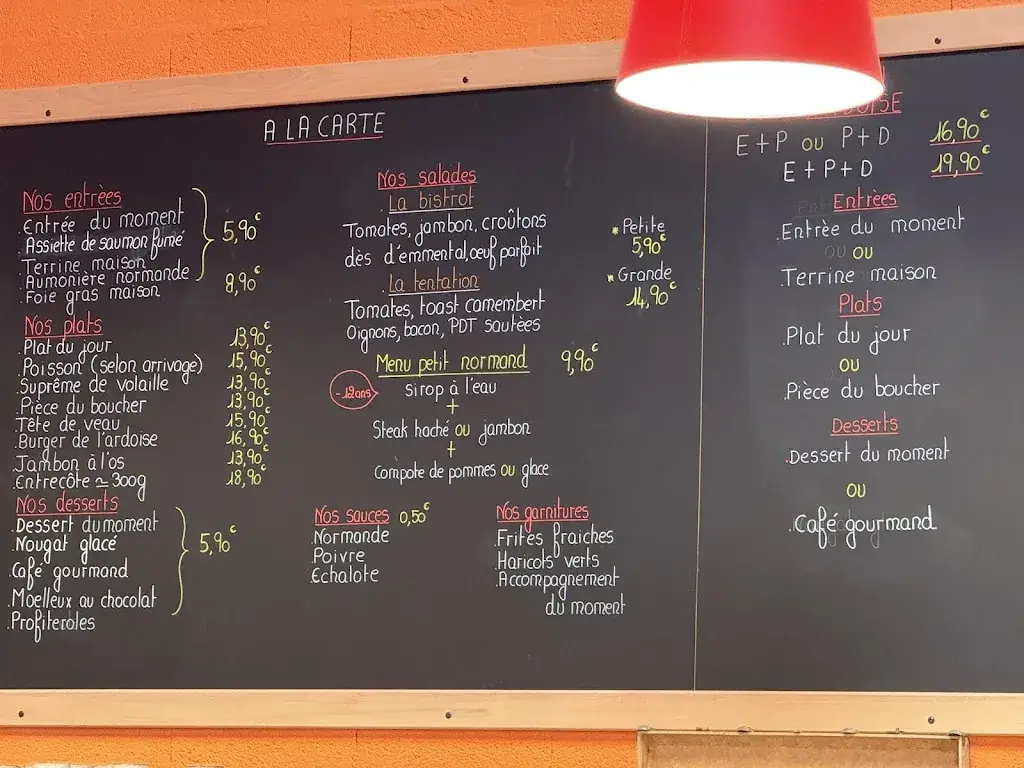 A LA CARTE
Nos entrées
.Entrée du moment
.Assiette de saumon fumé
.Terrine maison
.Aumonière normande
5,90€
.Foie gras maison 8,90€
Nos plats
.Plat du jour 13,90€
.Poisson (selon arrivage) 15,90€
.Suprême de volaille 13,90€
.Pièce du boucher 13,90€
.Tête de veau 15,90€
.Burger de l'ardoise 16,90€
.Jambon à l'os 13,90€
.Entrecôte ≃ 300g 18,90€
Nos desserts
.Dessert du moment
.Nougat glacé
.Café gourmand
.Moelleux au chocolat
.Profiteroles
5,90€
Nos salades
.La bistrot
Tomates, jambon, croûtons
dès d'emmental, œuf parfait
.La tentation
Tomates, toast camembert
Oignons, bacon, PDT sautées
* Petite
5,90€
* Grande
14,90€
Menu petit normand 9,90€
-12ans
sirop à l'eau
+
Steak haché ou jambon
+
Compote de pommes ou glace
Nos sauces 0,50€
.Normande
.Poivre
.Echalote
Nos garnitures
.Frites fraiches
.Haricots verts
.Accompagnement
du moment
E+P ou P+D 16,90€
E+P+D 19,90€
Entrèes
.Entrèe du moment
ou
.Terrine maison
Plats
.Plat du jour
ou
.Pièce du boucher
Desserts
.Dessert du moment
ou
.Café gourmand